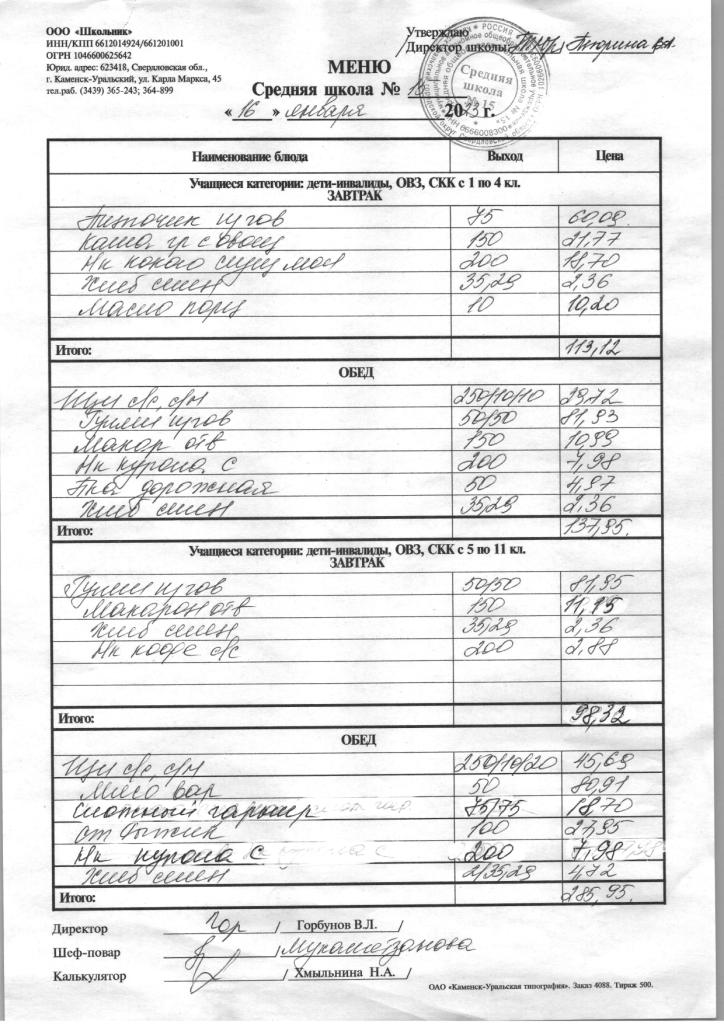 ООО «Школьник»
ИНН/КПП 6612014924/661201001
ОГРН 1046600625642
Юрид. адрес: 623418, Свердловская обл.,
г. Каменск-Уральский, ул. Карла Маркса, 45
тел.раб. (3439) 365-243; 364-899
Утверждаю
Директор школы
Средняя школа № 15
МЕНЮ
Средняя школа №
« 16 » января 2023 г.
Наименование блюда Выход Цена
Учащиеся категории: дети-инвалиды, ОВЗ, СКК с 1 по 4 кл.
ЗАВТРАК
75 60,09
Каша 150 21,77
Нк какао 200 18,70
Хлеб 35,29 2,36
Масло порц 10 10,20
Итого: 113,12
ОБЕД
Щи с/с, с/м 250/10/10 29,72
Гуляш 50/50 81,93
Макар отв 150 10,99
Нк курага с 200 7,98
дорожная 50 4,97
Хлеб 35,29 2,36
Итого: 137,95
Учащиеся категории: дети-инвалиды, ОВЗ, СКК с 5 по 11 кл.
ЗАВТРАК
Гуляш 50/50 81,95
Макарон отв 150 11,15
Хлеб 35,29 2,36
Нк кофе с/с 200 2,88
Итого: 98,32
ОБЕД
Щи с/с, с/м 250/10/20 45,69
Мясо вар 50
Сложный гарнир 75/75 18,70
100 27,95
Нк курага с 200 7,98
Хлеб 2/35,29 4,72
Итого: 285,95
Директор / Горбунов В.Л. /
Шеф-повар /
Калькулятор / Хмыльнина Н.А. /
ОАО «Каменск-Уральская типография». Заказ 4088. Тираж 500.